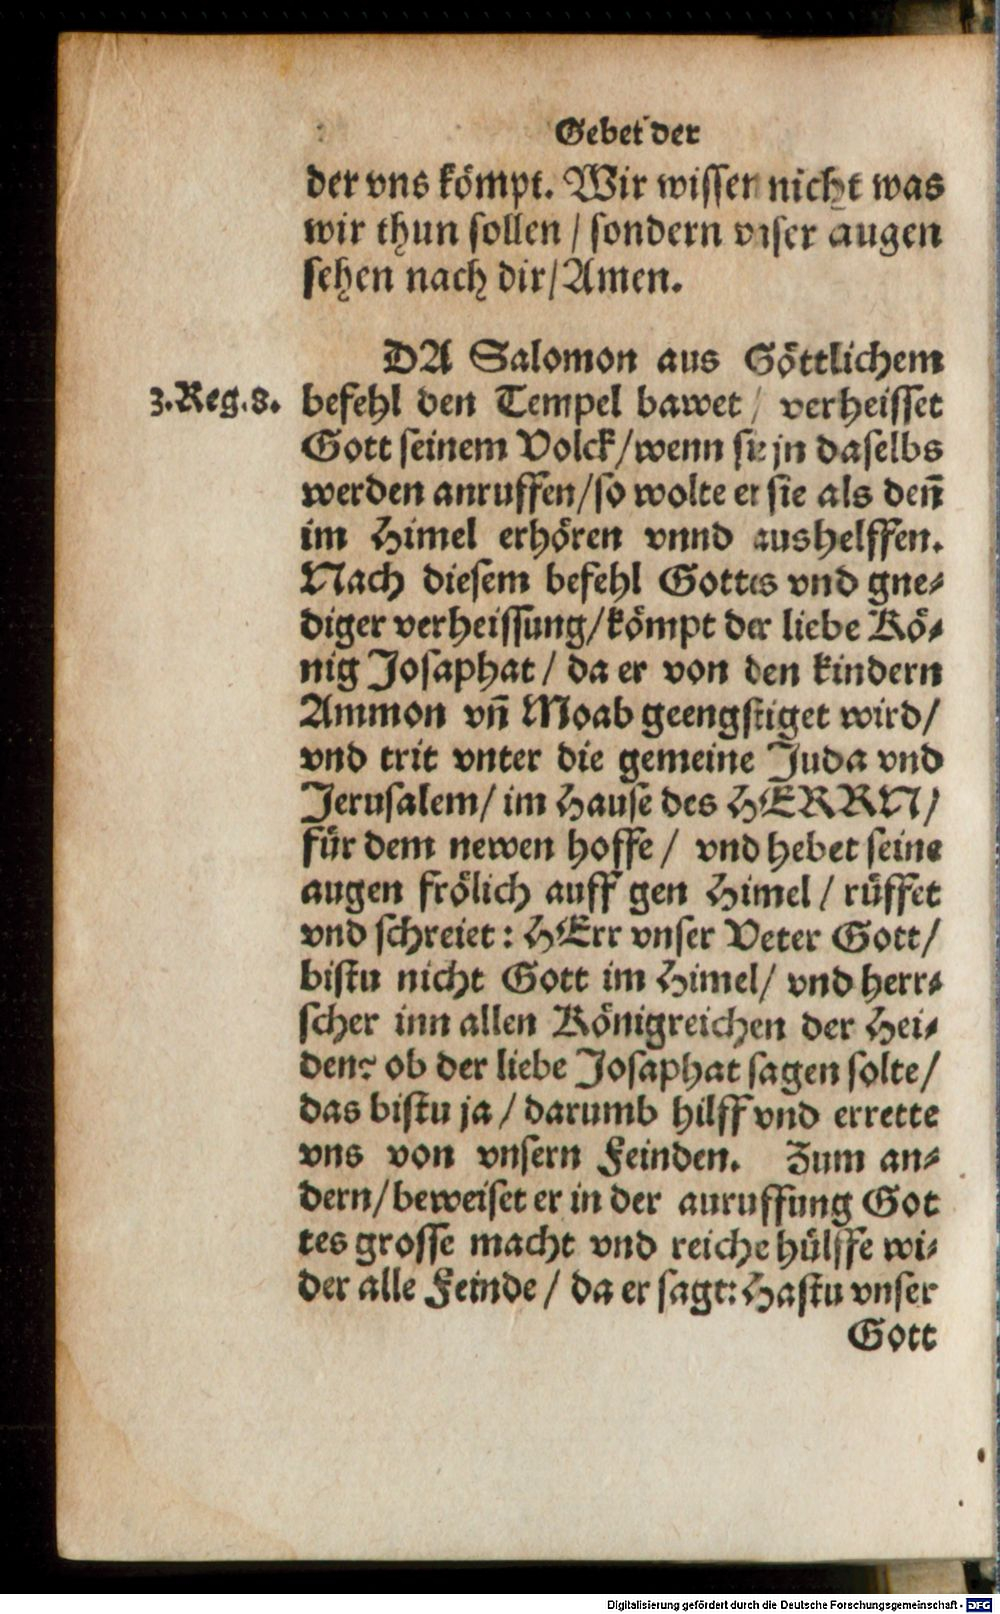 Gebet der
der vns kömpt. Wir wissen nicht was
wir thun sollen / sondern vnser augen
sehen nach dir / Amen.
DA Salomon aus Göttlichem
3. Reg. 8. befehl den Tempel bawet / verheisset
Gott seinem Volck / wenn sie jn daselbs
werden anruffen / so wolte er sie als deñ
im Himel erhören vnnd aushelffen.
Nach diesem befehl Gottes vnd gne⸗
diger verheissung / kömpt der liebe Kö⸗
nig Josaphat / da er von den kindern
Ammon vñ Moab geengstiget wird /
vnd trit vnter die gemeine Juda vnd
Jerusalem / im Hause des HERRN /
für dem newen hoffe / vnd hebet seine
augen frölich auff gen Himel / rüffet
vnd schreiet : HErr vnser Veter Gott /
bistu nicht Gott im Himel / vnd herr⸗
scher inn allen Königreichen der Hei⸗
den? ob der liebe Josaphat sagen solte /
das bistu ja / darumb hilff vnd errette
vns von vnsern Feinden. Zum an⸗
dern / beweiset er in der auruffung Got
tes grosse macht vnd reiche hülffe wi⸗
der alle Feinde / da er sagt: Hastu vnser
Gott
Digitalisierung gefördert durch die Deutsche Forschungsgemeinschaft - DFG